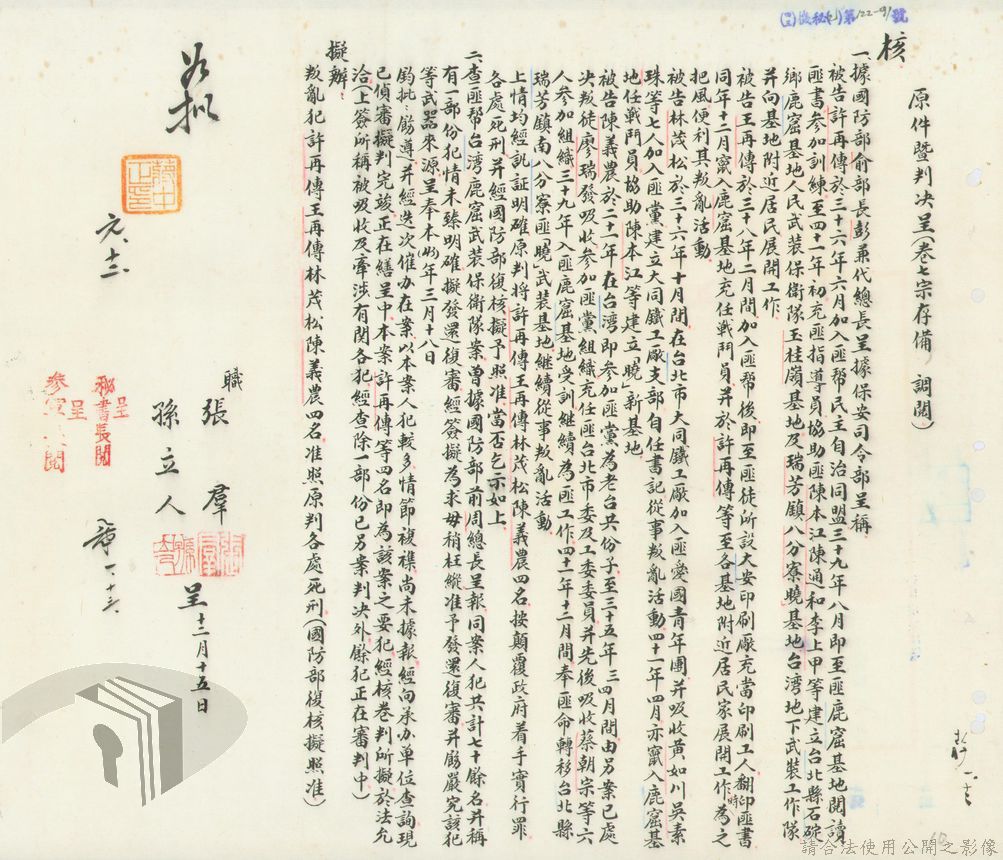 (四三)機秘(乙)第122-91號
原件暨判決呈(卷七宗存備調閱)
核
一據國防部俞部長彭兼代總長呈據保安司令部呈稱
被告許再傳於三十六年六月加入匪帮民主自治同盟三十九年八月即至匪鹿窟基地閱讀
匪書參加訓練至四十一年初充匪指導員協助匪陳本江陳通和李上甲等建立台北縣石碇
鄉鹿窟基地人民武装保衛隊玉桂嶺基地及瑞芳鎮八分寮曉基地台湾地下武装工作隊
并向基地附近居民展開工作
被告王再傳於三十八年二月間加入匪帮後即至匪徒所設大安印刷廠充當印刷工人翻印匪書
同年十二月竄入鹿窟基地充任戰鬥員并於許再傳等至各基地附近居民家展開工作時為之
把風便利其叛亂活動
被告林茂松於三十六年十月間在台北市大同鐵工廠加入匪愛國青年團并吸收黄如川吳素
珠等七人加入匪黨建立大同鐵工廠支部自任書記從事叛亂活動四十一年四月亦竄入鹿窟基
地任戰鬥員協助陳本江等建立「曉」新基地
被告陳義農於二十一年在台湾即参加匪黨為老台共份子至三十五年三四月間由另案已處
决叛徒廖瑞發吸收参加匪黨組織充任匪台北市委及工委委員并先後吸收蔡朝宗等六
人參加組織三十九年入匪鹿窟基地受訓継續為匪工作四十一年十二月間奉匪命轉移台北縣
瑞芳鎮南八分寮匪「曉」武装基地継續從事叛亂活動
上情均經訊証明確原判將許再傳王再傳林茂松陳義農四名按顛覆政府着手實行罪
各處死刑并經國防部復核擬予照准當否乞示如上
二查匪帮台湾鹿窟武装保衛隊案曽據國防部前周總長呈報同案人犯共計七十餘名并稱
有一部份犯情未臻明確擬發還復審經簽擬為求毋稍枉縱准予發還復審并飭嚴究該犯
等武器來源呈奉本(43)年三月十八日
鈞批:飭遵并經迭次催办在案以本案人犯較多情節複襍尚未據報經向承办單位查詢現
已偵審擬判完竣正在繕呈中本案許再傳等四名即為該案之要犯經核卷判所擬於法允
洽(上簽所稱被吸收及牽涉有関各犯經查除一部份已另案判决外餘犯正在審判中)
擬辦:
叛亂犯許再傳王再傳林茂松陳義農四名准照原判各處死刑(國防部復核擬照准)
職 張 羣
孫 立 人
呈 十二月十五日
呈
秘書長閱
呈
如擬
蔣中正印
元、十三、
請合法使用公開之影像